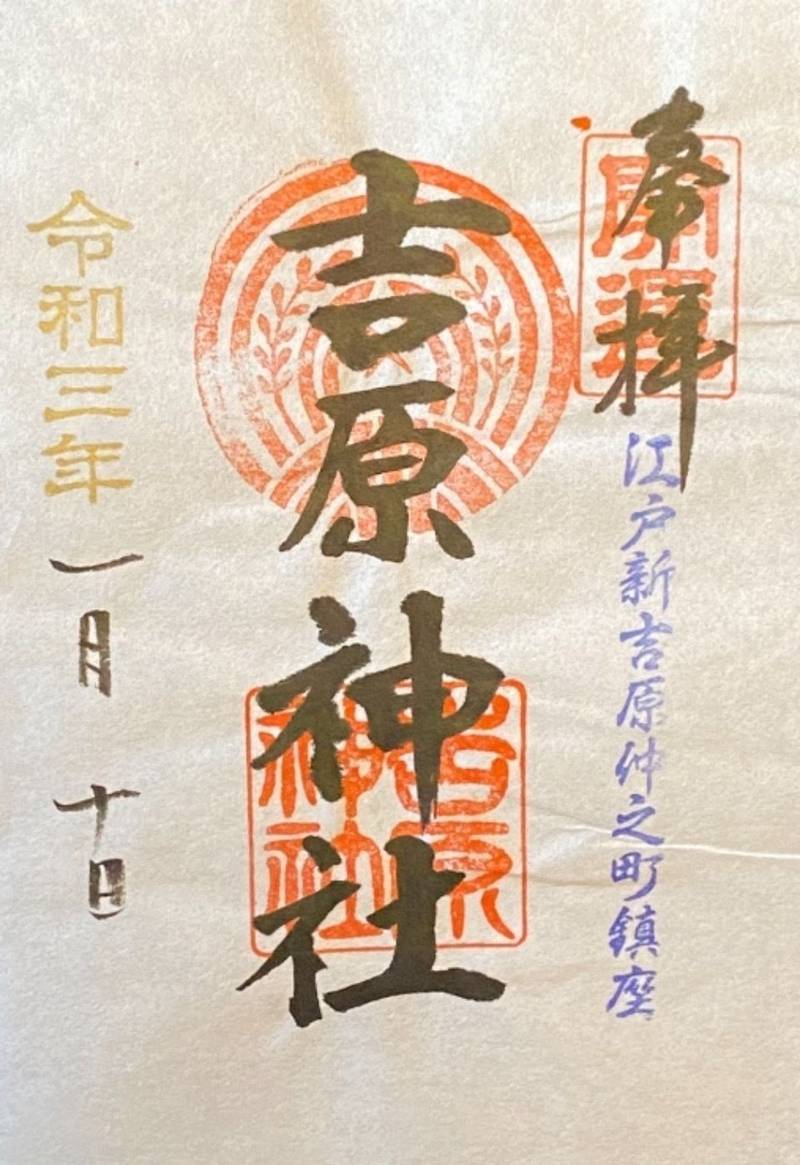 奉拝
開運
江戸新吉原仲之町鎮座
吉原神社
吉原
神社
令和三年
一月
十日